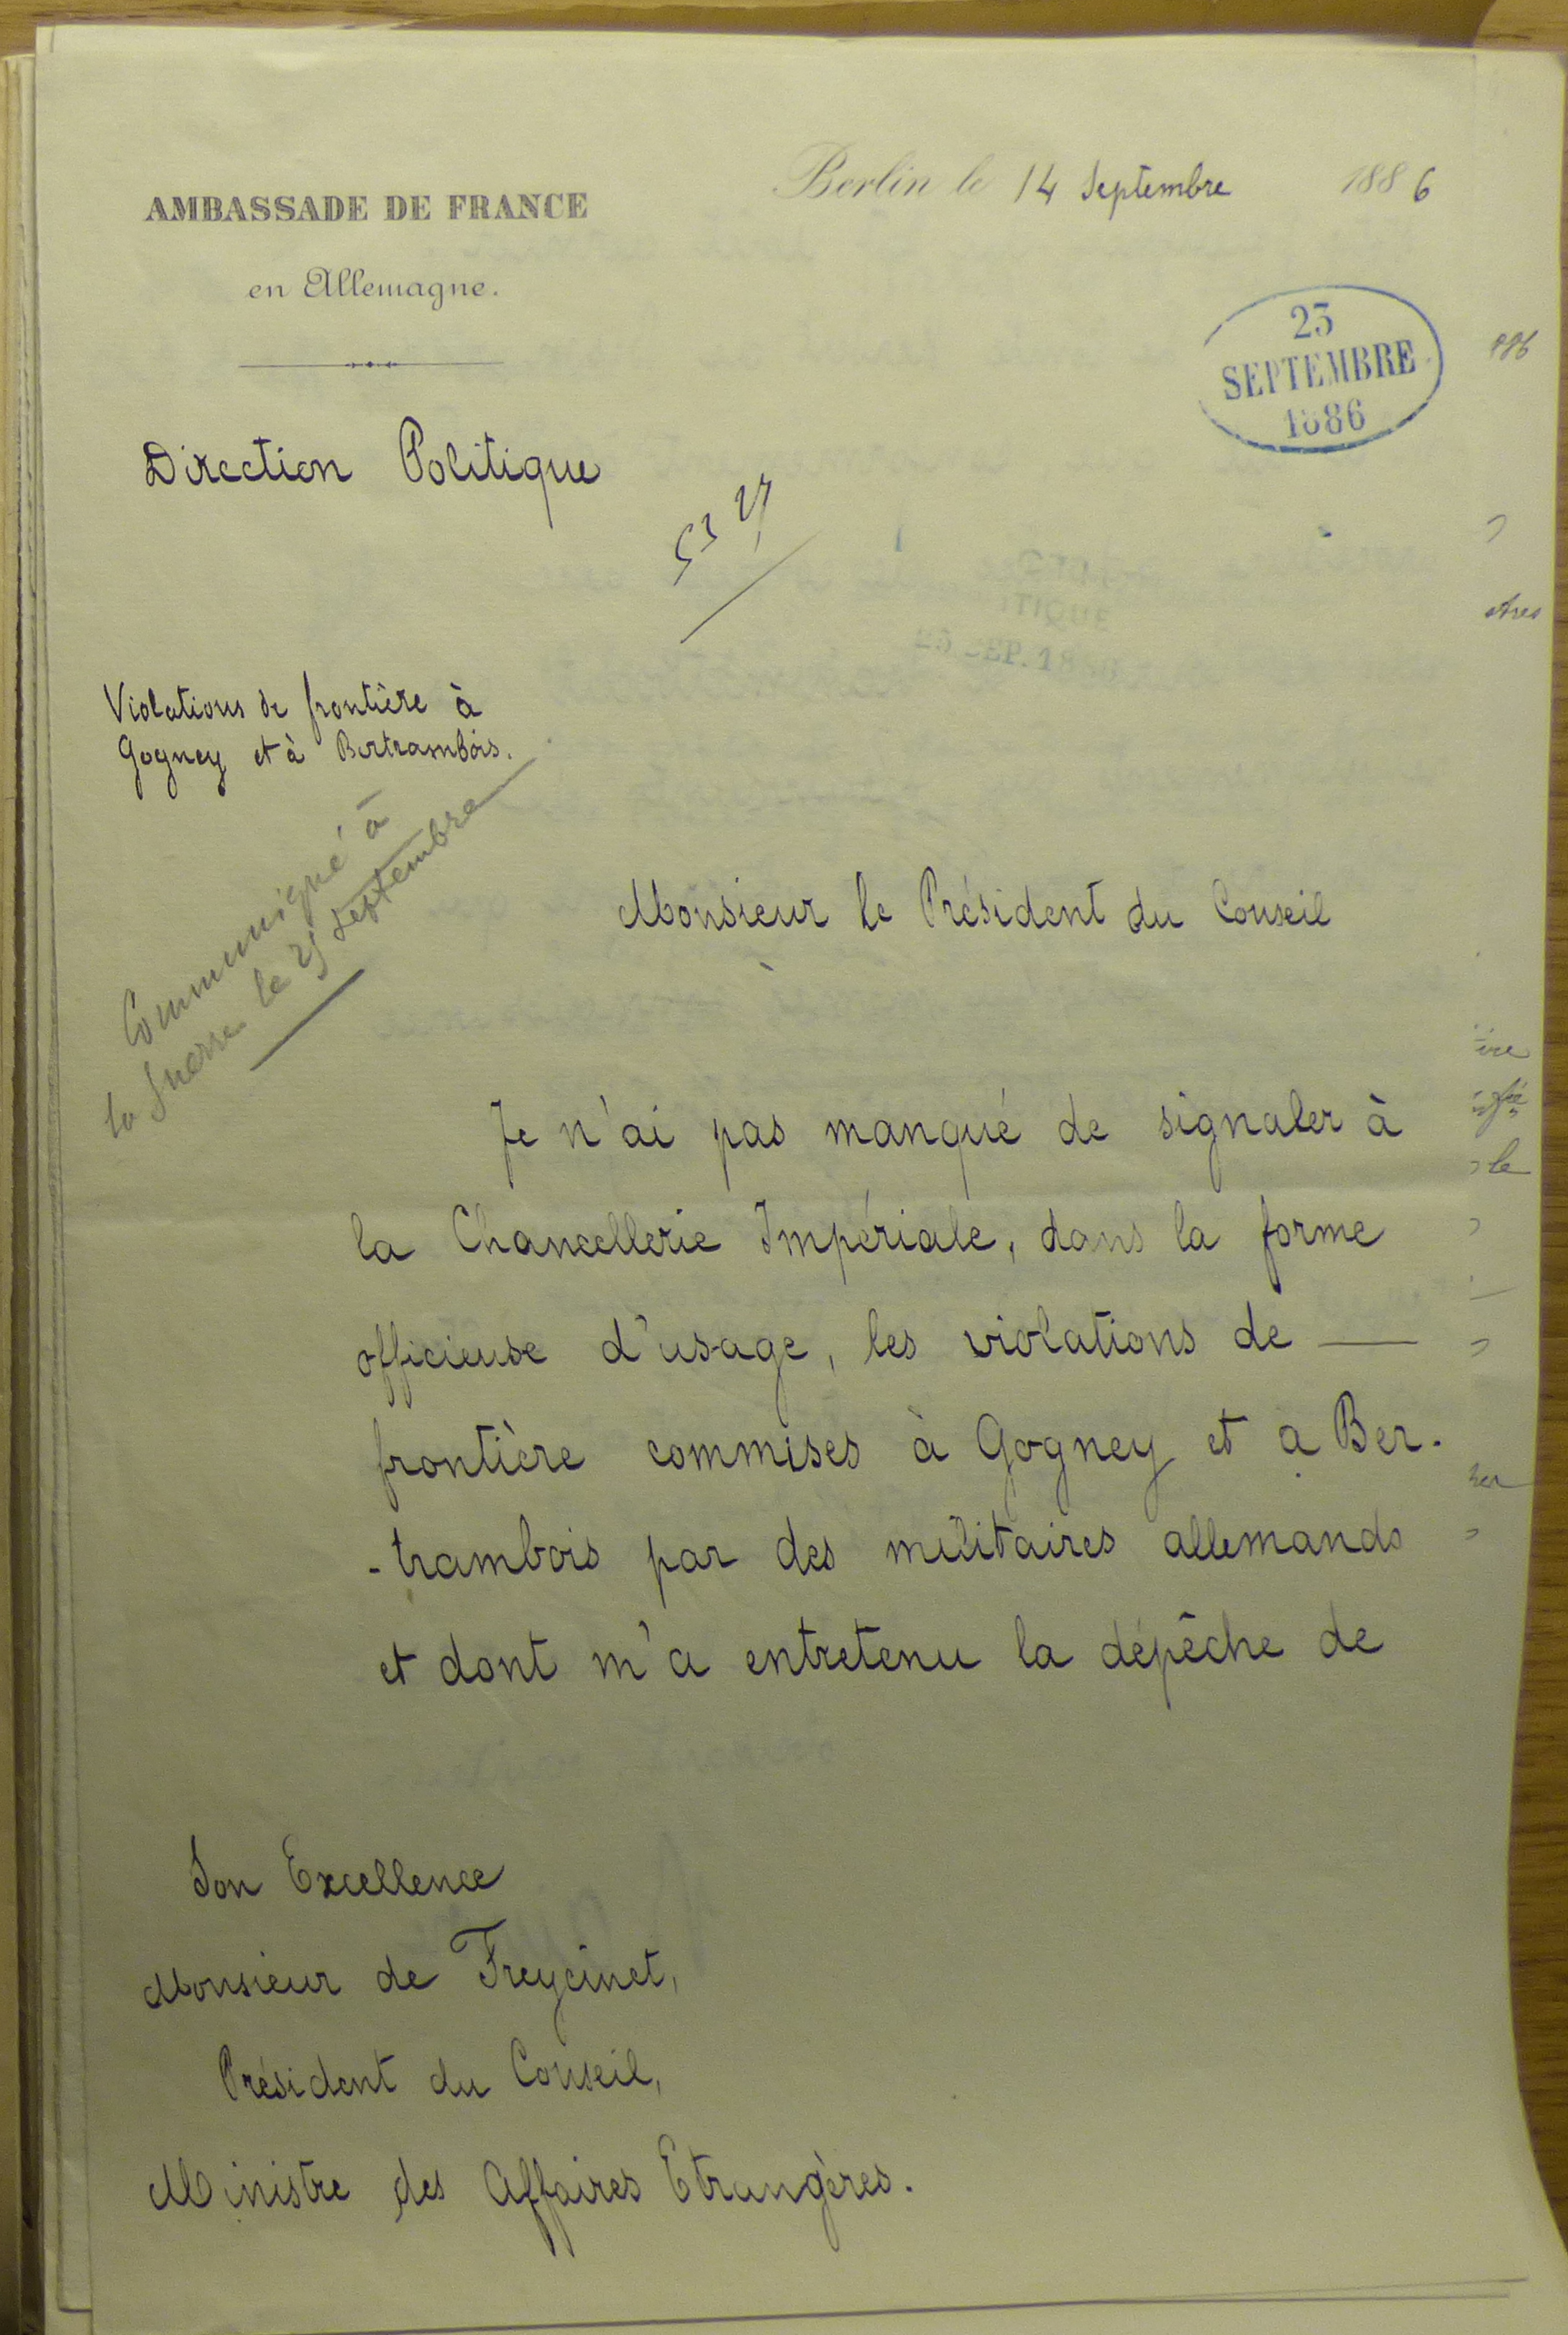 AMBASSADE DE FRANCE
en Allemagne.
Berlin le 14 Septembre 1886
23
SEPTEMBRE
1886
Direction Politique
Violations de frontière à
Gogney et à Bertrambois.
Communiqué à
la guerre le 25 septembre
Monsieur le Président du Conseil
Je n'ai pas manqué de signaler à
la Chancellerie Impériale, dans la forme
officieuse d'usage, les violations de —
frontière commises à Gogney et à Ber-
-trambois par des militaires allemands
et dont m'a entretenu la dépêche de
Son Excellence
Monsieur de Freycinet,
Président du Conseil,
Ministre des Affaires Etrangères.